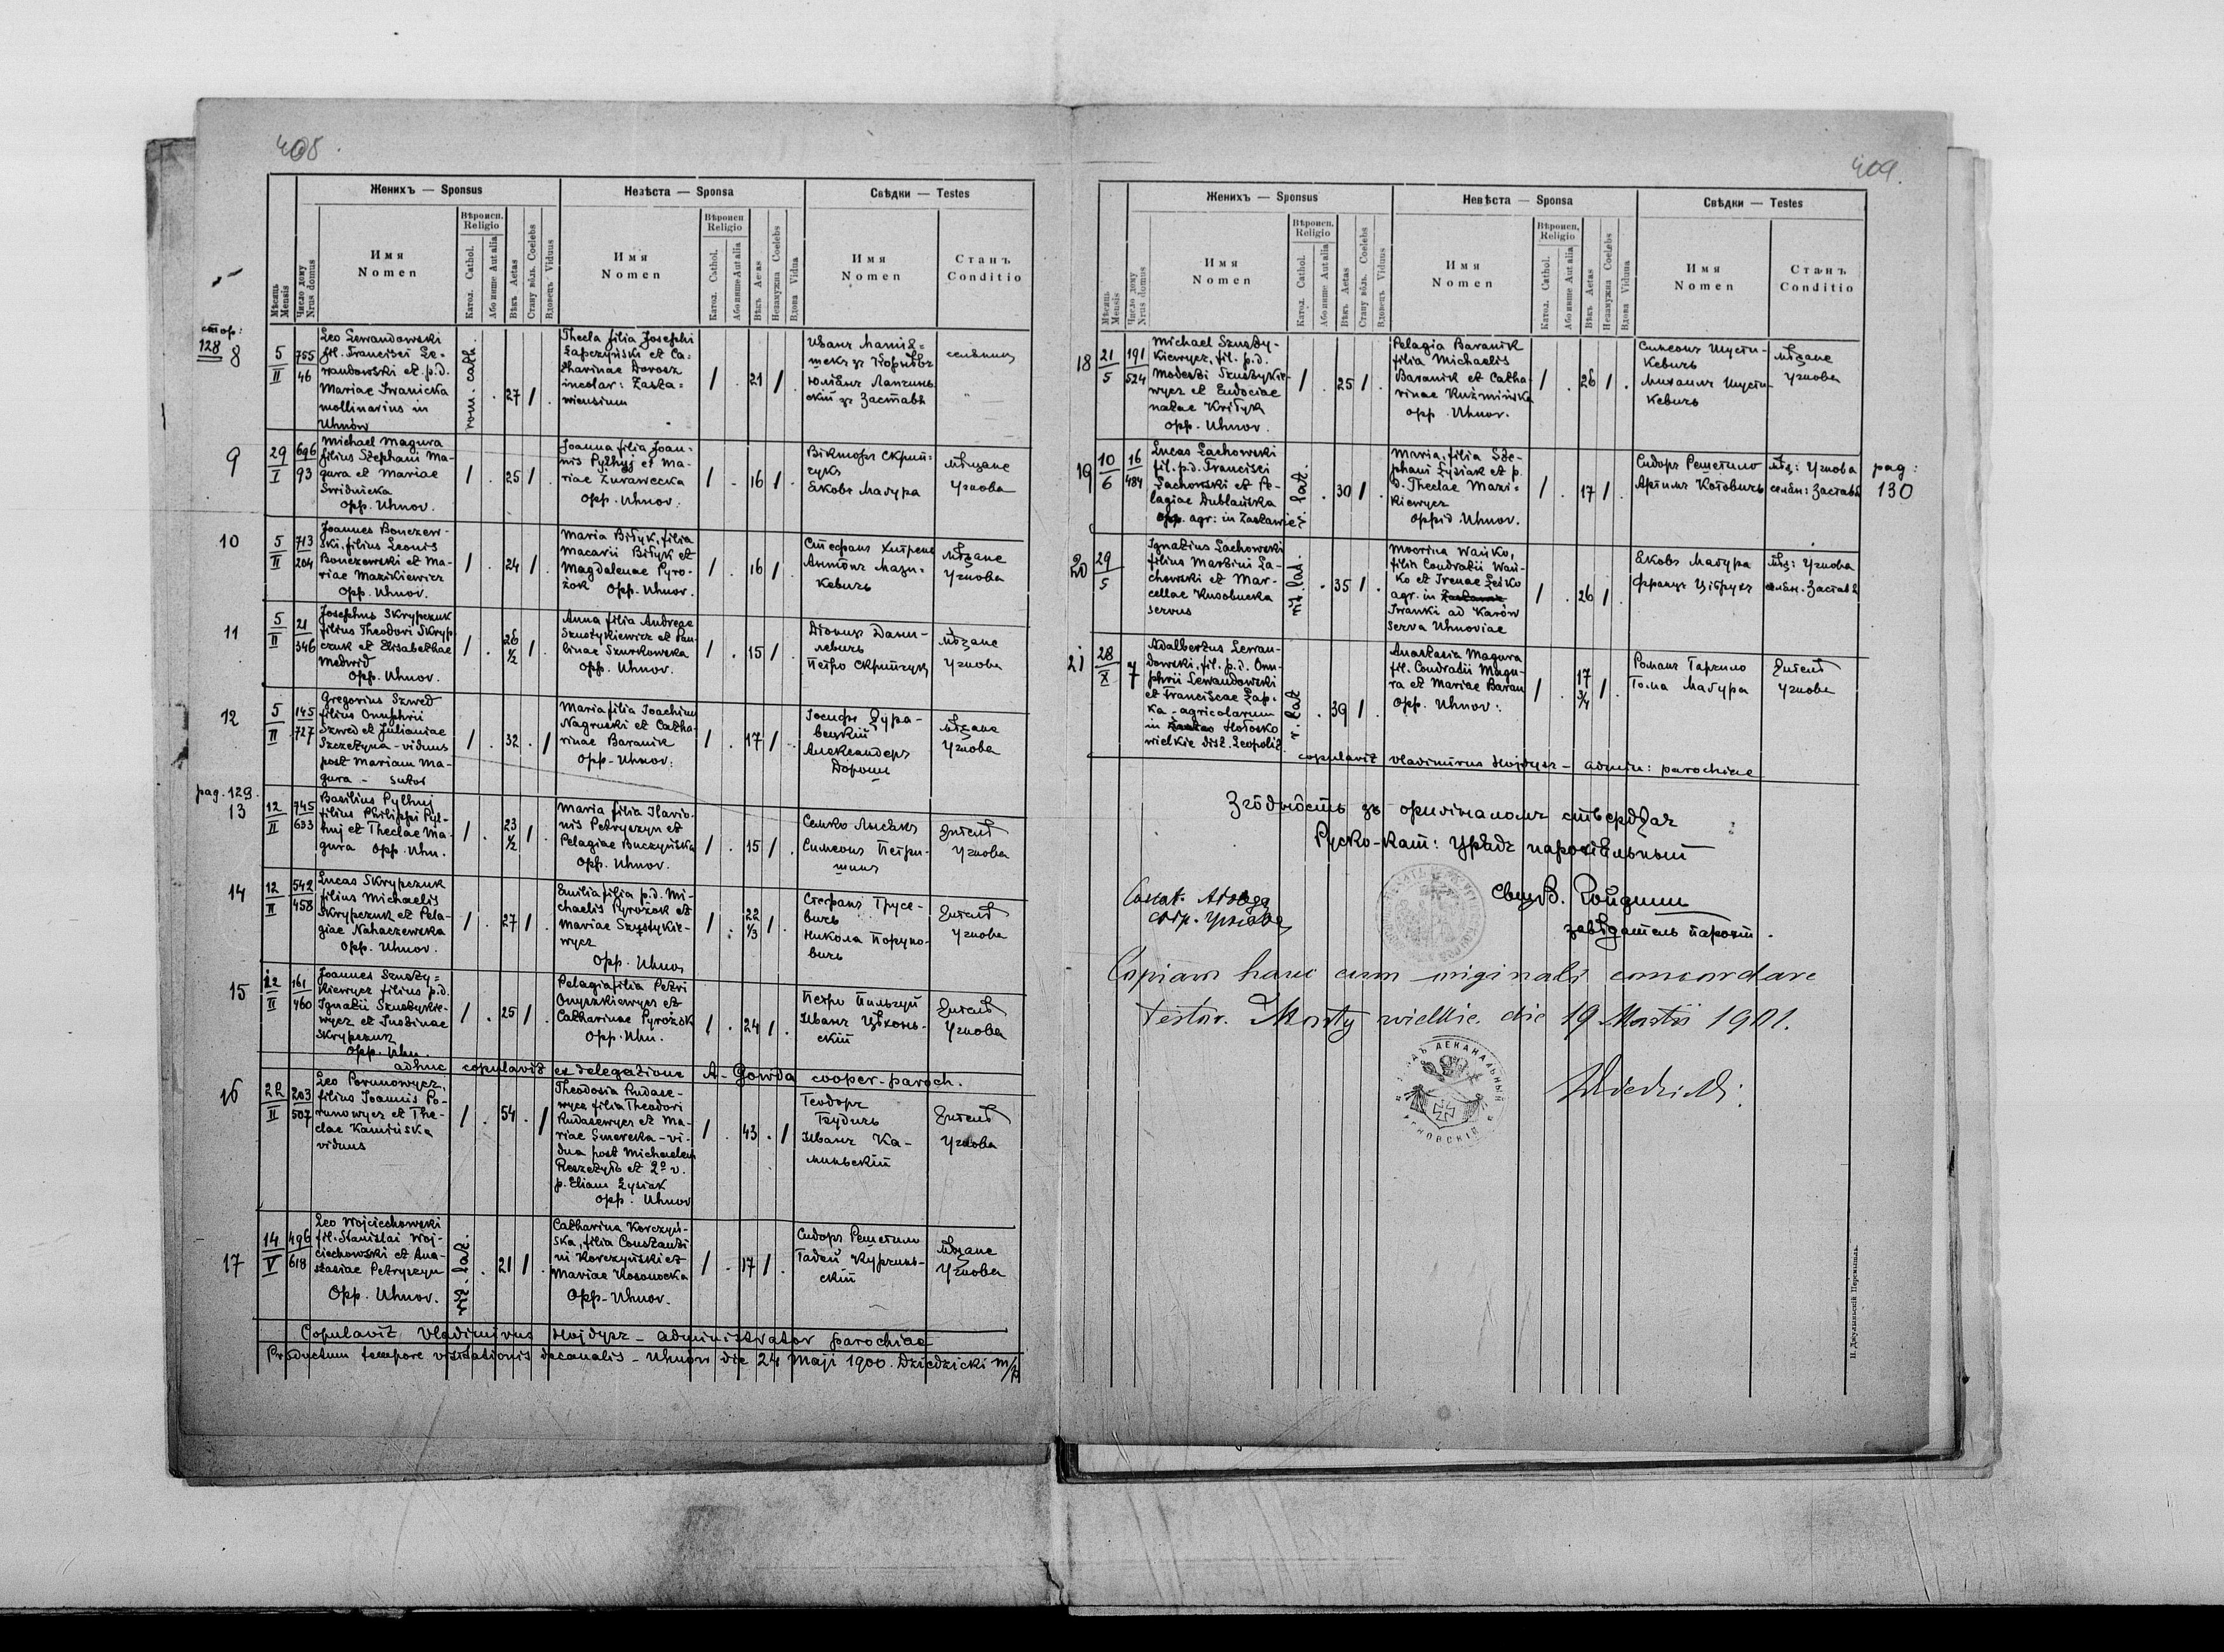 408.
Женихъ — Sponsus
Невѣста — Sponsa
Свѣдки — Testes
Мѣсяць Mensis
Число дому Nrus domus
Имя Nomen
Вѣроисп. Religio
Катол. Cathol.
Або инше Aut alia
Вѣкъ Aetas
Стану вôль. Coelebs
Вдовець Viduus
Имя Nomen
Вѣроисп. Religio
Катол. Cathol.
Або инше Aut alia
Вѣкъ Aetas
Незамужна Coelebs
Вдова Vidua
Имя Nomen
Станъ Conditio
стор:
128
8
5/II
755/46
Leo Lewandowski
fil. Francisci Le-
wandowski et p.d.
Mariae Iwanicka
mollinarius in
Uhnów
rom. cath.
27 /
Thecla filia Josephi
Łapczyński et Ca-
tharinae Dorosz
incolar: Zasta-
wiensium
/ . 21 /
Юлiанъ Лапчинь-
скiй зъ Заставѣ
9
29/I
696/93
Michael Magura
filius Stephani Ma-
gura et Mariae
Swidnicka
Opp. Uhnov.
/ . 25 /
Joanna filia Joan-
nis Pylhyj et Ma-
riae Żurawecka
Opp. Uhnov.
/ . 16 /
Вiкторъ Скрип-
чукъ
Яковъ Маґура
мѣщане
Угнова
10
5/II
713/204
Joannes Bonczew-
ski, filius Leonis
Bonczewski et Ma-
riae Mazikiewicz
Opp. Uhnov.
/ . 24 /
Maria Bityk, filia
Macarii Bityk et
Magdalenae Pyro-
żok Opp. Uhnov.
/ . 16 /
Стефанъ
Антонъ Мази-
кевичъ
мѣщане
Угнова
11
5/II
21/346
Josephus Skrypczuk
filius Theodori Skryp-
czuk et Elisabethae
Medwid
Opp. Uhnov.
/ . 26 1/2 /
Anna filia Andreae
Szustykiewicz et Pau-
linae Szurkowska
Opp. Uhnov.
/ . 15 /
Дiонизъ Дани-
левичъ
Петро Скрипчукъ
мѣщане
Угнова
12
5/II
145/727
Gregorius Szwed
filius Onuphrii
Szwed et Julianiae
Szczetyna - viduus
post Mariam Ma-
gura - sutor
/ . 32 . /
Maria filia Joachim
Nagruski et Catha-
rinae Baranik
Opp. Uhnov:
/ . 17 /
Iосифъ Жура-
вецкiй
Александеръ
Дорош
мѣщане
Угнова
pag. 129
13
12/II
745/633
Basilius Pylhuj
filius Philippi Pyl-
huj et Theclae Ma-
gura Opp. Uhn.
/ . 23 1/2 /
Maria filia Ilario-
nis Petryszyn et
Pelagiae Buczyńska
Opp. Uhnov.
/ . 15 /
Семко Лысакъ
Симеонъ Петри-
шинъ
Угнова
14
12/II
542/458
Lucas Skrypczuk
filius Michaelis
Skrypczuk et Pela-
giae Nahaczewska
Opp. Uhnov.
/ . 27 /
Emilia filia p.d. Mi-
chaelis Pyrożok et
Mariae Szystykie-
wycz
Opp. Uhnov
/ . 22 1/3 /
Стефанъ Трусе-
вичъ
Никола Поруно-
вичъ
Угнова
15
22/II
161/460
Joannes Szusty-
kiewycz filius p.d.
Ignatii Szustykie-
wycz et Justinae
Skrypczuk
Opp. Uhn.
/ . 25 /
Pelagia filia Petri
Onyszkiewycz et
Catharinae Pyrożok
Opp. Uhn.
/ . 24 /
Петро Пильгуй
Иванъ Цѣхонь-
скiй
Угнова
adhuc copulavit ex delegatione A. Gowda cooper-paroch.
16
22/II
203/507
Leo Porunowycz,
filius Joannis Po-
runowycz et The-
clae Kamińska
viduus
/ . 54 . /
Theodosia Rudase-
wycz filia Theodori
Rudasewycz et Ma-
riae Smerecka - vi-
dua post Michaelem
Reszetyło et 2º v.
p. Eliam Łysiak
Opp. Uhnov
/ . 43 . /
Теодоръ
Грудичъ
Иванъ Ка-
миньскiй
Угнова
17
14/V
496/618
Leo Wojciechowski
fil. Stanislai Woj-
ciechowski et Ana-
stasiae Petryszyn
Opp. Uhnov.
rit. lat.
. 21 /
Catharina Korczyń-
ska, filia Constanti-
ni Korczyński et
Mariae Kosonocka
Opp. Uhnov.
/ . 17 /
Сидоръ Решетило
Тадей Курчинь-
скiй
мѣщане
Угнова
Copulavit Vladimirus Hojdysz - administrator parochiae
Productum tempore visitationis decanalis - Uhnów die 24 Maji 1900. Dziedzicki m/p
409.
Женихъ — Sponsus
Невѣста — Sponsa
Свѣдки — Testes
Мѣсяць Mensis
Число дому Nrus domus
Имя Nomen
Вѣроисп. Religio
Катол. Cathol.
Або инше Aut alia
Вѣкъ Aetas
Стану вôль. Coelebs
Вдовець Viduus
Имя Nomen
Вѣроисп. Religio
Катол. Cathol.
Або инше Aut alia
Вѣкъ Aetas
Незамужна Coelebs
Вдова Vidua
Имя Nomen
Станъ Conditio
18
21/5
191/524
Michael Szusty-
kiewycz, fil. p.d.
Modesti Szustykie-
wycz et Eudociae
natae Krityk
Opp. Uhnov.
/ . 25 /
Pelagia Baranik
filia Michaelis
Baranik et Catha-
rinae Kuźmińska
Opp. Uhnov.
/ . 26 / .
Симеонъ Шусти-
кевичъ
Михаилъ Шусти-
кевичъ
мѣщане
Угнова
19
10/6
16/484
Lucas Lachowski
fil. p.d. Francisci
Lachowski et Pe-
lagiae Dublańska
agr: in Zastawie
r. lat.
. 30 /
Maria, filia Ste-
phani Łysiak et p.
d. Theclae Mazi-
kiewycz
Oppid. Uhnov.
/ . 17 / .
Сидоръ Решетило
Артимъ Котовичъ
мѣщ: Угнова
селян: Заставѣ
pag:
130
20
29/5
Ignatius Lachowski
filius Martini La-
chowski et Mar-
cellae Kusobucka
servus
rit. lat.
. 35 /
Mocrina Wańko,
filia Condratii Wań-
ko et Irenae Leśko
agr. in
Iwanki ad Karów
serva Uhnoviae
/ . 26 /
Яковъ Маґура
Францъ
мѣщ: Угнова
селян. Заставѣ
21
28/X
7
Adalbertus Lewan-
dowski, fil. p.d. Onu-
phrii Lewandowski
et Franciscae Łap-
ka - agricolarum
in Hołosko
wielkie dist. Leopolit.
r. lat
. 39 /
Anastasia Magura
fil. Condratii Magu-
ra et Mariae Baran
Opp. Uhnov:
/ . 17 3/4 /
Романъ Гаргило
Тома Маґура
Угнова
copulavit Vladimirus Hojdysz - admin: parochiae
Згôднôсть зъ ориґiналомъ стверджає
Руско-кат: Урядъ парохiяльный
Свящ В. Гойдиш
завѣдатель парохiи.
Copiam hanc cum originali concordare
testor. Mosty wielkie die 19 Martii 1901.
Dziedzicki
Н. Джулыньскiй Перемышль.